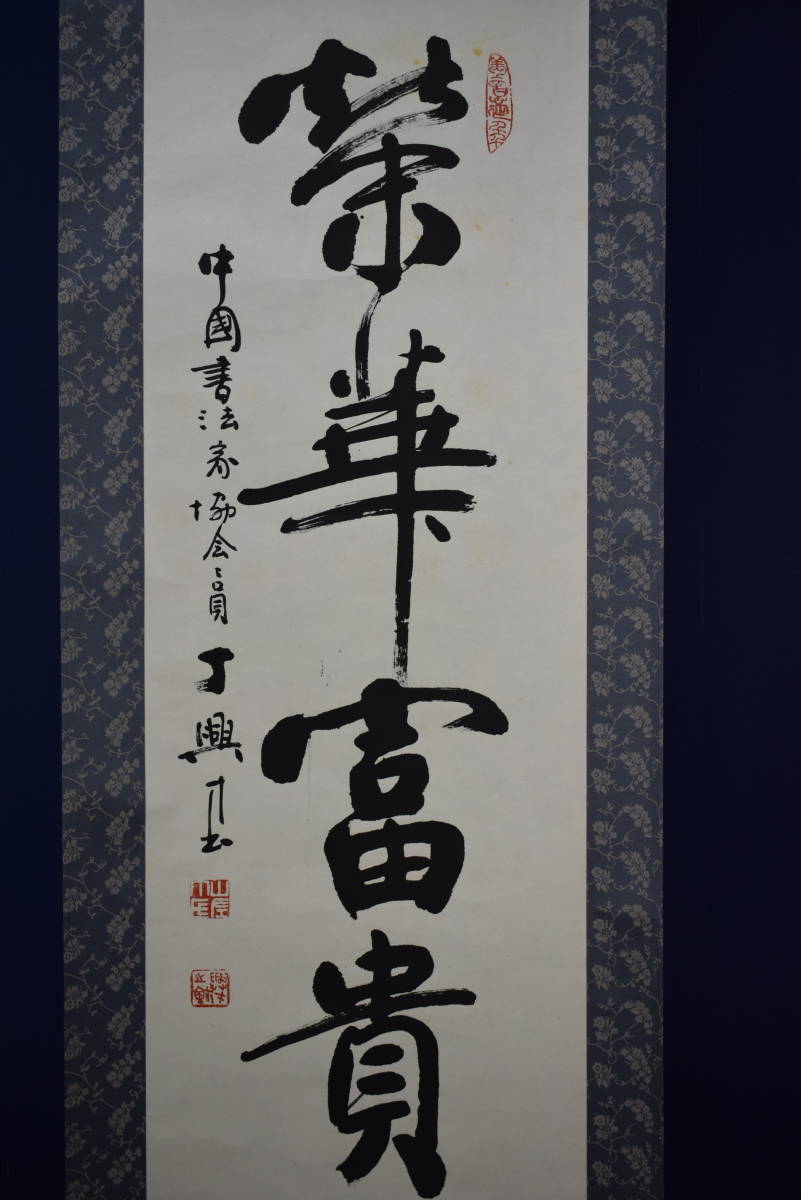 榮華富貴
中國書法家協会員
丁興